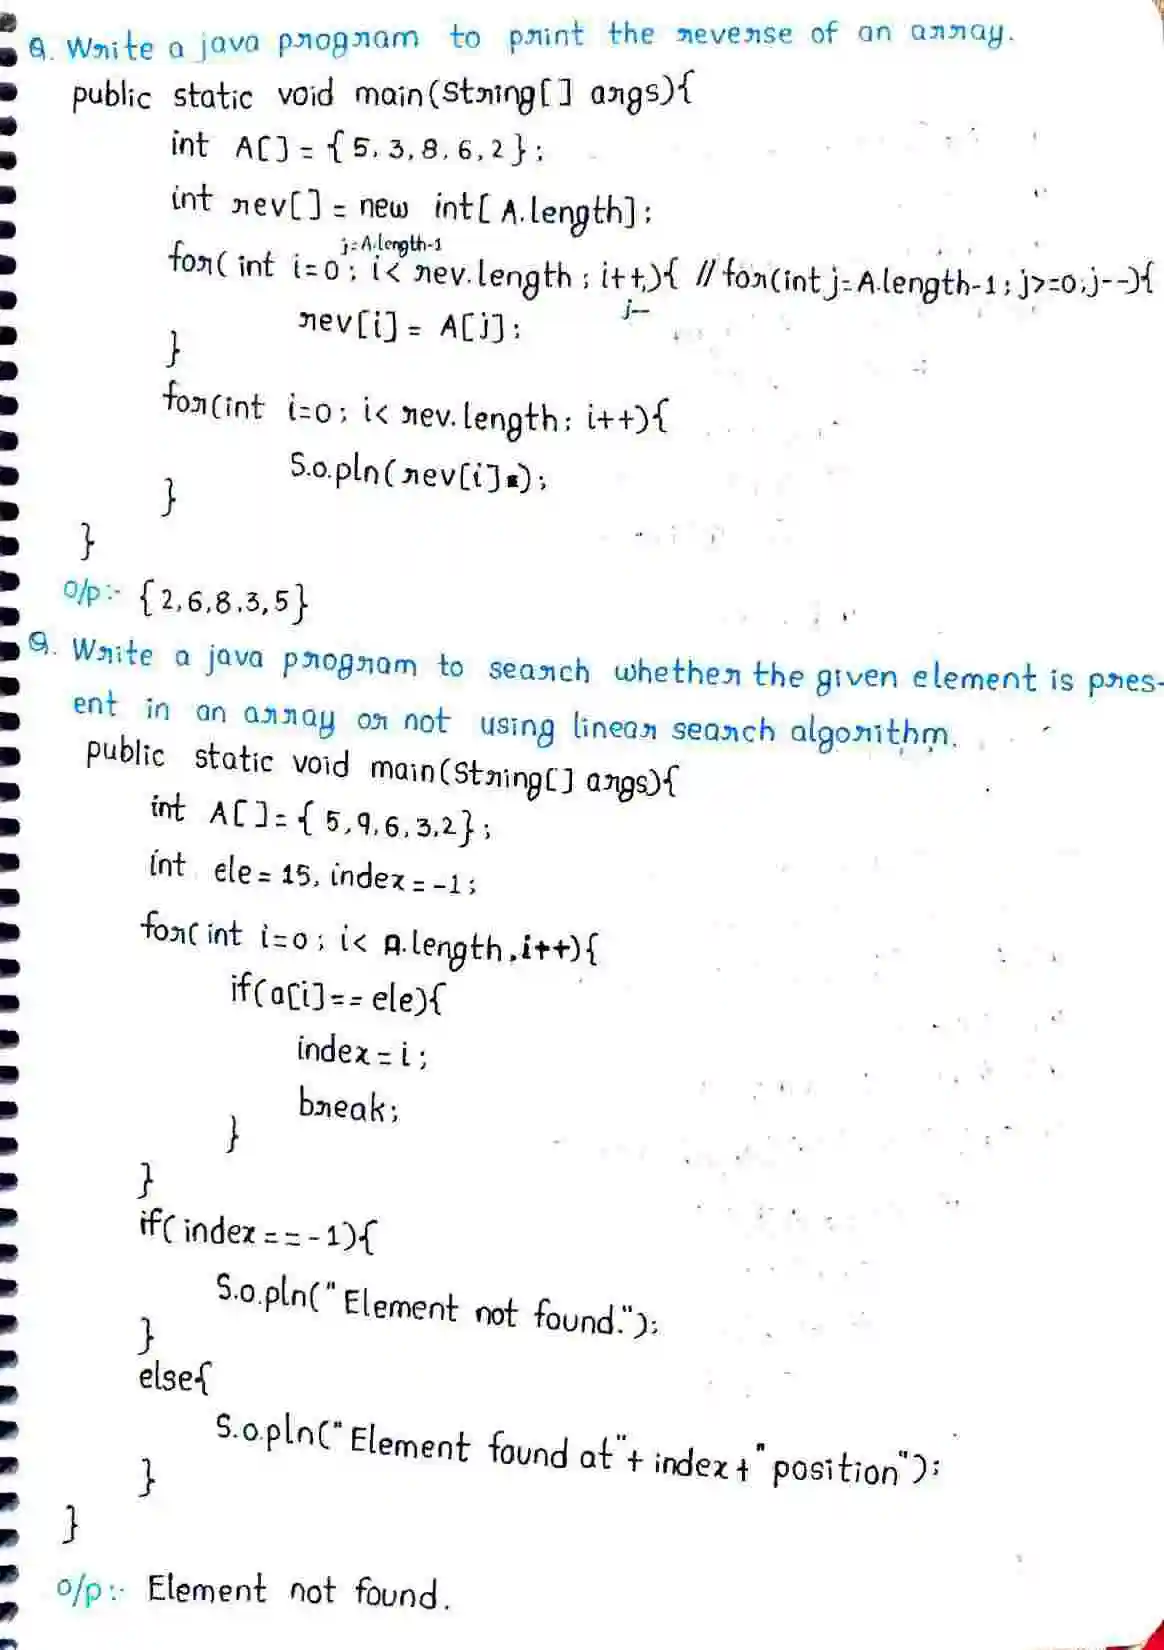 Q. Write a java program to print the reverse of an array.
public static void main(String[] args){
int A[] = {5,3,8,6,2};
int rev[] = new int[A.length];
j=A.length-1
for(int i=0; i< rev.length; i++,){ //for(int j=A.length-1; j>=0;j--){
j--
rev[i] = A[j];
}
for(int i=0; i< rev.length; i++){
S.o.pln(rev[i]);
}
}
o/p:- {2,6,8,3,5}
Q. Write a java program to search whether the given element is pres-
ent in an array or not using linear search algorithm.
public static void main(String[] args){
int A[]={5,9,6,3,2};
int ele = 15, index = -1;
for(int i=0; i< A.length,i++){
if(a[i]== ele){
index = i;
break;
}
}
if(index == -1){
S.o.pln("Element not found.");
}
else{
S.o.pln("Element found at"+ index+"position");
}
}
o/p:- Element not found.